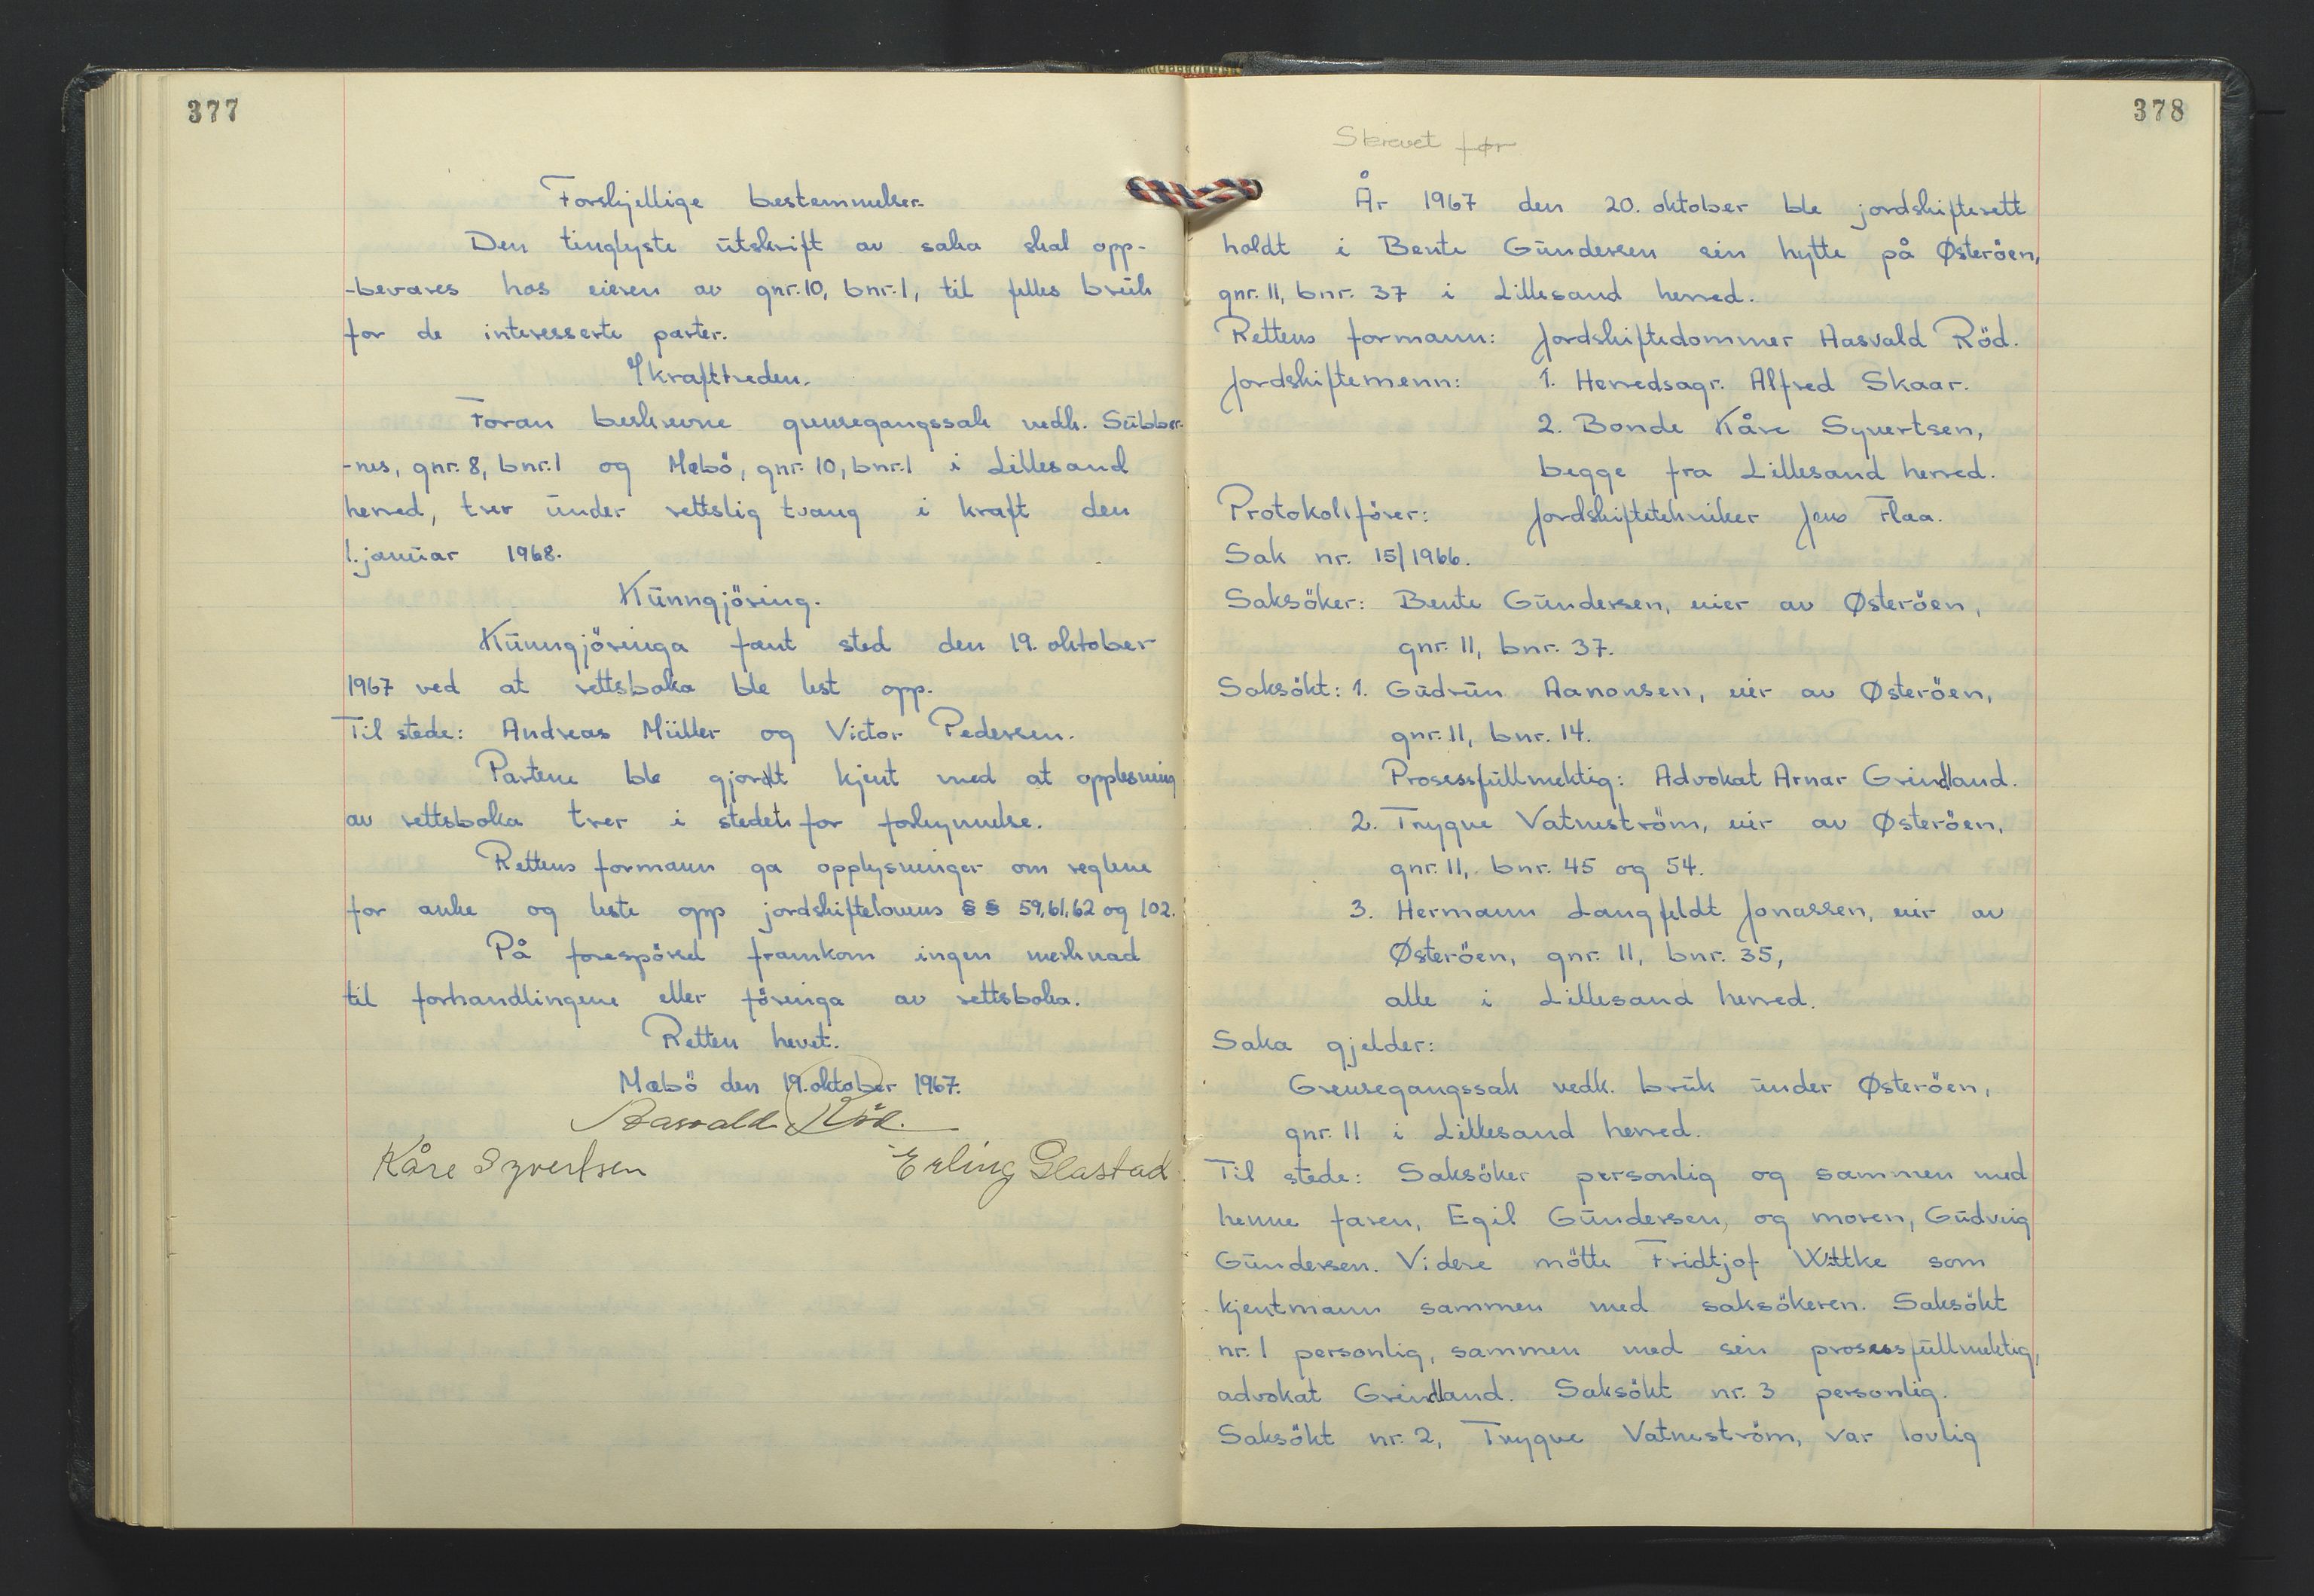 377
Forskjellige bestemmelser.
Den tinglyste utskrift av saka skal opp-
-bevares hos eieren av gnr. 10, bnr. 1, til felles bruk
for de interesserte parter.
Ikrafttreden.
Foran beskrevne grensegangssak vedk. Sübber-
-nes, gnr. 8, bnr. 1 og Mæbö, gnr. 10, bnr. 1 i Lillesand
herred, trer under rettslig tvang i kraft den
1. januar 1968.
Kunngjöring.
Kunngjöringa fant sted den 19. oktober
1967 ved at rettsboka ble lest opp.
Til stede: Andreas Müller og Victor Pedersen.
Partene ble gjordt kjent med at opplesning
av rettsboka trer i stedet for forkynnelse.
Rettens formann ga opplysninger om reglene
for anke og leste opp jordskiftelovens §§ 59, 61, 62 og 102.
På forespörsel framkom ingen merknad
til forhandlingene eller föringa av rettsboka.
Retten hevet.
Mæbö den 19. oktober 1967.
Aasvald Röd.
Kåre Syvertsen Erling Glastad
378
Skrevet før
År 1967 den 20. oktober ble jordskifterett
holdt i Bente Gundersen sin hytte på Østeröen,
gnr. 11, bnr. 37 i Lillesand herred.
Rettens formann: Jordskiftedommer Aasvald Röd.
Jordskiftemenn: 1. Herredsagr. Alfred Skaar.
2. Bonde Kåre Syvertsen,
begge fra Lillesand herred.
Protokollförer: Jordskiftetekniker Jens Flaa.
Sak nr. 15/1966.
Saksöker: Bente Gundersen, eier av Østeröen,
gnr. 11, bnr. 37.
Saksökt: 1. Gudrun Aanonsen, eier av Østeröen,
gnr. 11, bnr. 14.
Prosessfullmektig: Advokat Arnar Grindland.
2. Trygve Vatneström, eier av Østeröen,
gnr. 11, bnr. 45 og 54.
3. Hermann Langfeldt Jonassen, eier av
Østeröen, gnr. 11, bnr. 35,
alle i Lillesand herred.
Saka gjelder:
Grensegangssak vedk. bruk under Østeröen,
gnr. 11 i Lillesand herred.
Til stede: Saksöker personlig og sammen med
henne faren, Egil Gundersen, og moren, Gudveig
Gundersen. Videre mötte Fridtjof Wittke som
kjentmann sammen med saksökeren. Saksökt
nr. 1 personlig, sammen med sin prosessfullmektig,
advokat Grindland. Saksökt nr. 3 personlig.
Saksökt nr. 2, Trygve Vatneström, var lovlig